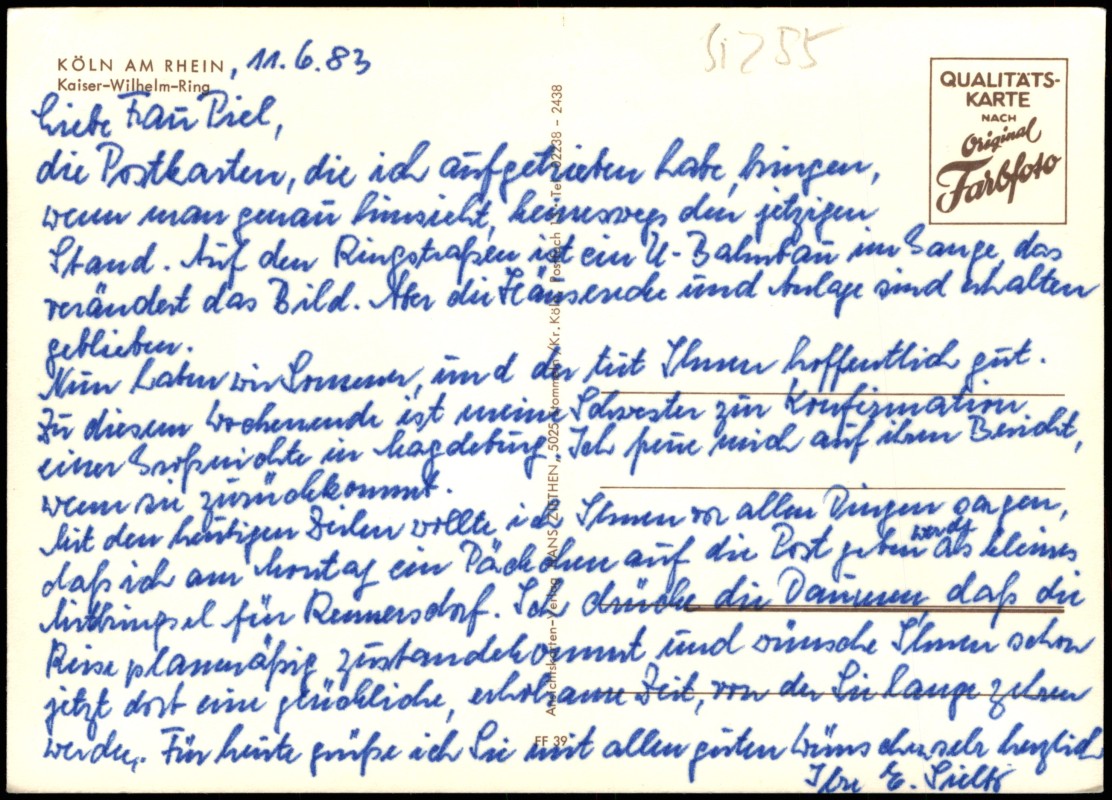 KÖLN AM RHEIN, 11.6.83
Kaiser-Wilhelm-Ring
QUALITÄTS-
KARTE
NACH
Original
Farbfoto
Liebe Frau Piel,
die Postkarten, die ich aufgetrieben habe, bringen,
wenn man genau hinsieht, keineswegs den jetzigen
Stand. Auf den Ringstraßen ist ein U-Bahnbau im Gange, das
verändert das Bild. Aber die Häuserecke und Anlage sind erhalten
geblieben.
Nun haben wir Sommer, und der tut Ihnen hoffentlich gut.
Zu diesem Wochenende ist meine Schwester zur Konfirmation
einer Großnichte in Magdeburg. Ich freue mich auf ihren Bericht,
wenn sie zurückkommt.
Mit den heutigen Zeilen wollte ich Ihnen vor allen Dingen sagen,
daß ich am Montag ein Päckchen auf die Post geben werde als kleines
Mitbringsel für Rennersdorf. Ich drücke die Daumen daß die
Reise planmäßig zustandekommt und wünsche Ihnen schon
jetzt dort eine glückliche, erholsame Zeit, von der Sie lange zehren
werden. Für heute grüße ich Sie mit allen guten Wünschen sehr herzlich
Ihre E.
Ansichtskarten-Verlag HANS ZIETHEN, 5025 Stommeln/Kr. Köln, Postfach Tel. 02238 - 2438
FF 39